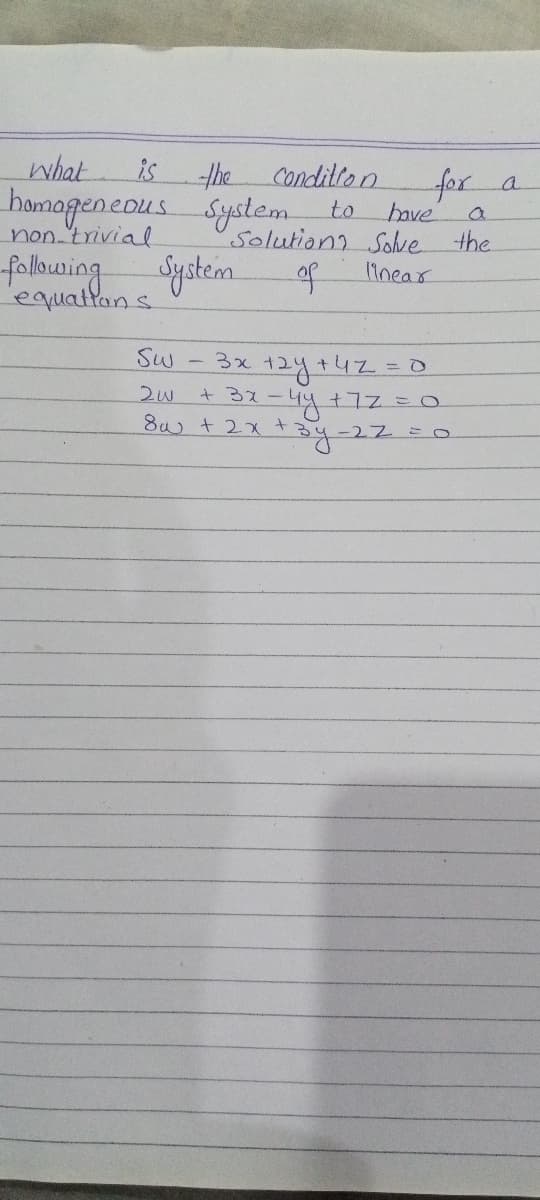 what is the condition for a
homogeneous system to have a
non-trivial solution? Solve the
following system of linear
equations
5w - 3x + 2y + 4z = 0
2w + 3x - 4y + 7z = 0
8w + 2x + 3y - 2z = 0